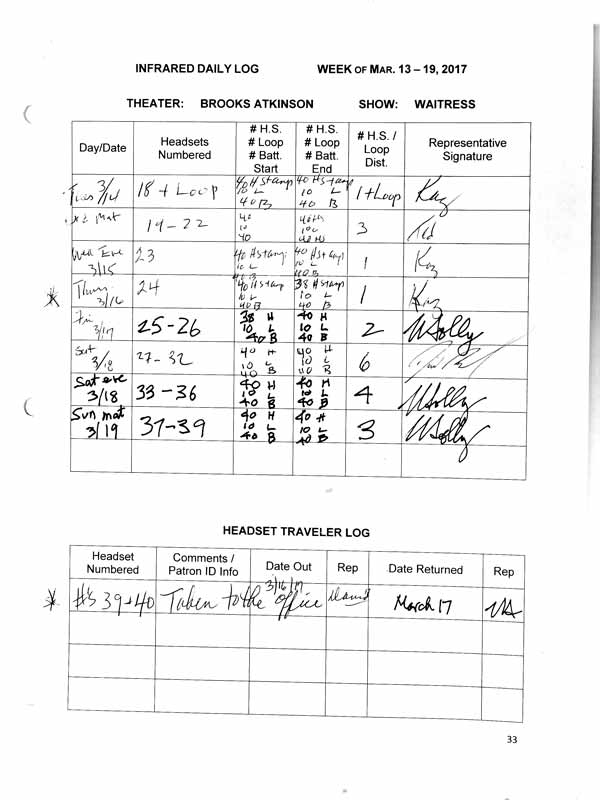 INFRARED DAILY LOG WEEK OF MAR. 13 – 19, 2017
THEATER: BROOKS ATKINSON SHOW: WAITRESS
Day/Date Headsets Numbered # H.S. # Loop # Batt. Start # H.S. # Loop # Batt. End # H.S. / Loop Dist. Representative Signature
Tues 3/14 18 + Loop 40 H stamp 10 L 40 B 40 H stamp 10 L 40 B 1 + Loop Kaz
Mat 19 - 22 40 10 40 3 Ted
Wed Eve 3/15 23 40 H stamp 10 L 40 B 40 H stamp 10 L 40 B 1 Kaz
* Thurs. 3/16 24 40 H stamp 10 L 40 B 38 H stamp 10 L 40 B 1 Kaz
Fri 3/17 25-26 38 H 10 L 40 B 40 H 10 L 40 B 2
Sat 3/18 27-32 40 H 10 L 40 B 40 H 10 L 40 B 6
Sat eve 3/18 33-36 40 H 10 L 40 B 40 H 10 L 40 B 4
Sun mat 3/19 37-39 40 H 10 L 40 B 40 H 10 L 40 B 3
HEADSET TRAVELER LOG
Headset Numbered Comments / Patron ID Info Date Out Rep Date Returned Rep
* #'s 39+40 Taken to the office 3/16/17 March 17
33